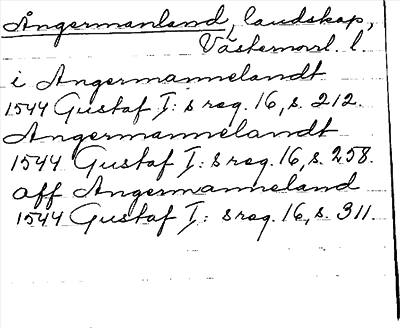 Ångermanland, landskap,
Västernorrl. l.
i Angermannelandt
1544 Gustaf I: s reg. 16, s. 212.
Angermannelandt
1544 Gustaf I: s reg. 16, s. 258.
aff Angermanneland
1544 Gustaf I: s reg. 16, s. 311.